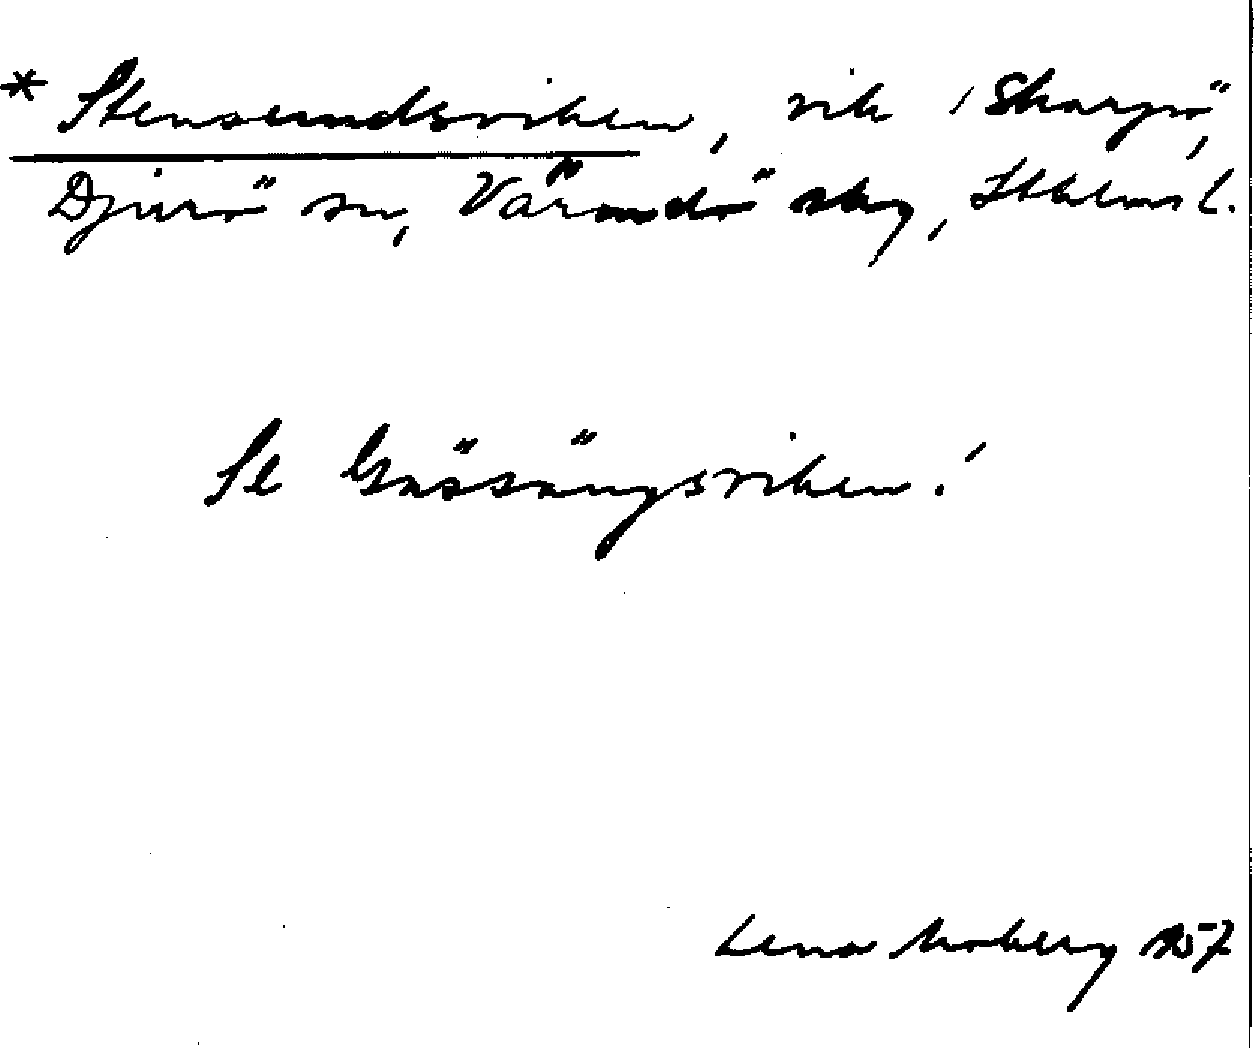 * Stensundsviken, vik i Skarpö,
Djurö sn, Värmdö skg, Sthlms l.
Se Gässängsviken!
Lena Moberg 1957